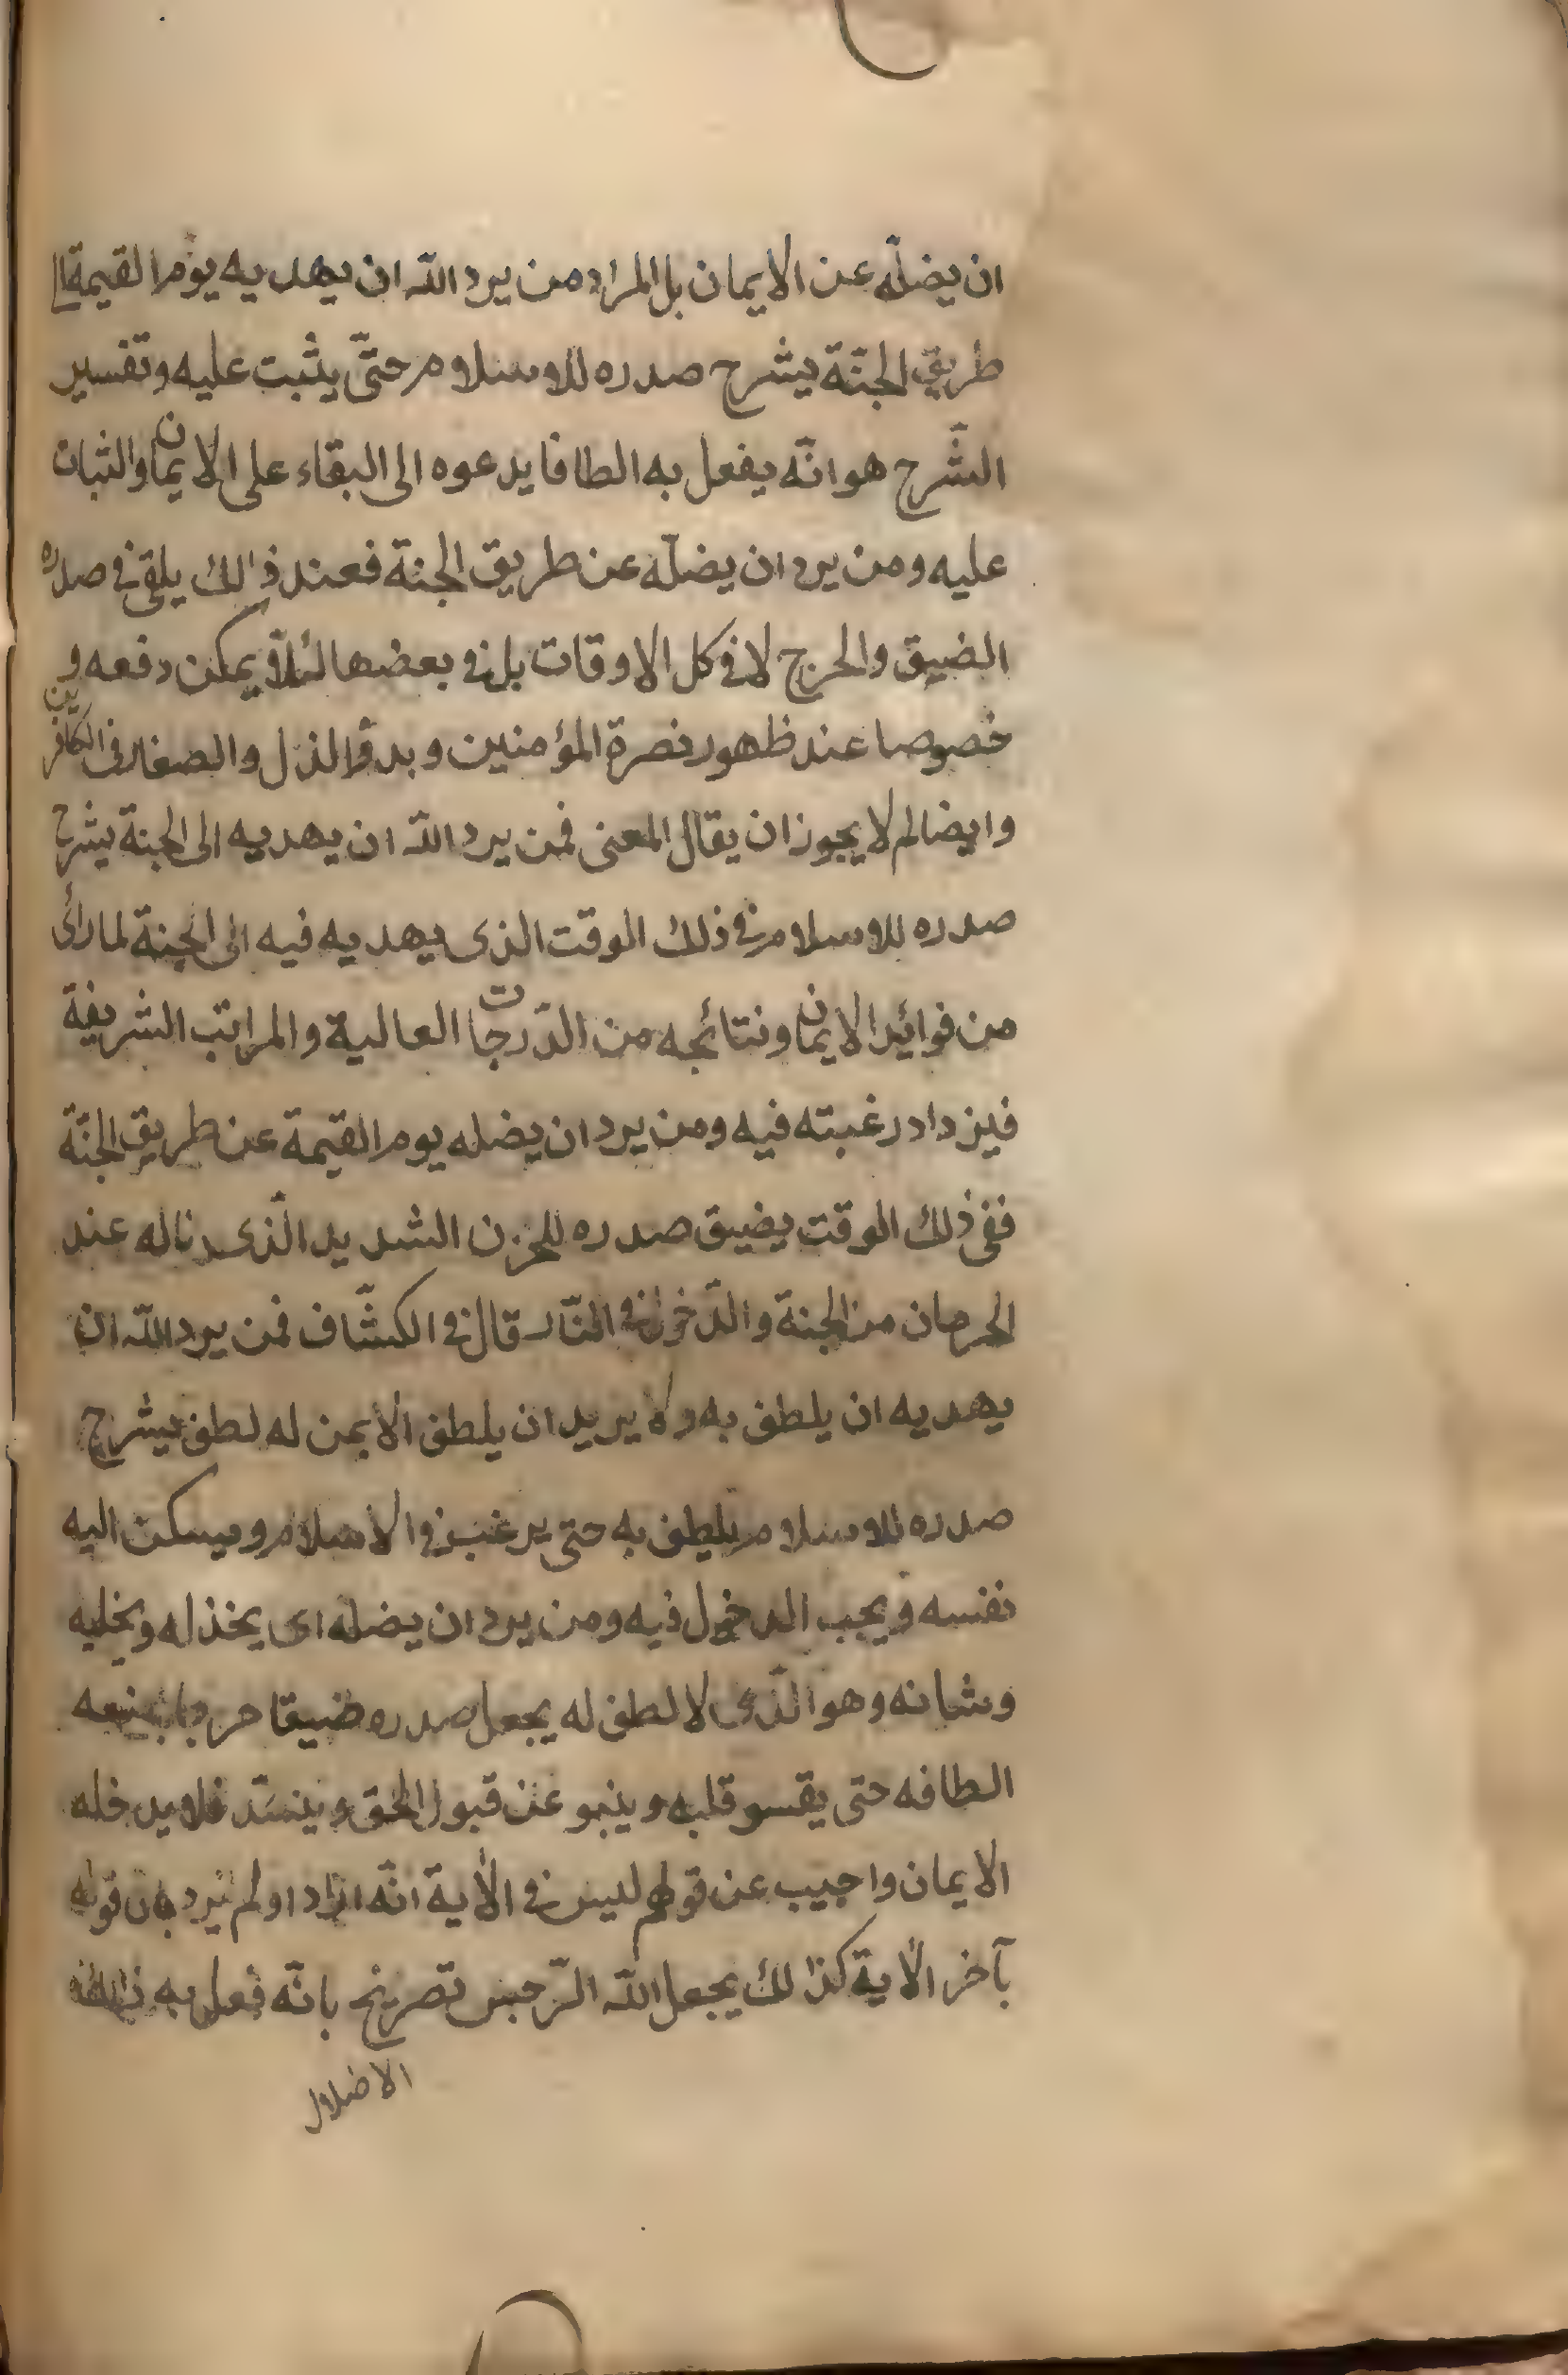 ان يضلّه عن الايمان بل المراد من يرد اللّه ان يهديه يوم القيمة الى
طريق الجنّة يشرح صدره للاسلام حتّى يثبت عليه وتفسير
الشّرح هو انّه يفعل به الطافا يدعوه الى البقاء على الايمان والثبات
عليه ومن يرد ان يضلّه عن طريق الجنة فعند ذالك يلقى في صدره
الضيق والحرج لا في كل الاوقات بل في بعضها لئلّا يمكن دفعه و
خصوصا عند ظهور نصرة المؤمنين وبدوّ الذل والصغار في الكافرين
وايضا لم لا يجوز ان يقال المعنى فمن يرد اللّه ان يهديه الى الجنة يشرح
صدره للاسلام في ذلك الوقت الذى يهديه فيه الى الجنة لما رأى
من فوائد الايمان ونتائجه من الدّرجات العالية والمراتب الشريفة
فيزداد رغبته فيه ومن يرد ان يضله يوم القيمة عن طريق الجنّة
ففي ذلك الوقت يضيق صدره للحزن الشديد الّذى ناله عند
الحرمان من الجنة والدّخول في النّار قال في الكشّاف فمن يرد اللّه ان
يهديه ان يلطف به ولا يريد ان يلطف الا بمن له لطف يشرح
صدره للاسلام يلطف به حتى يرغب في الاسلام ويسكن اليه
نفسه ويجب الدخول فيه ومن يرد ان يضله اى يخذله ويخليه
وشانه وهو الّذى لا لطف له يجعل صدره ضيقا حرجا يمنعه
الطافه حتى يقسو قلبه وينبو عن قبول الحق وينسدّ فلا يدخله
الايمان واجيب عن قولهم ليس في الآية انّه اراد او لم يرد بان قوله
بآخر الآية كذالك يجعل اللّه الرّجس تصريح بانّه فعل به ذالك
الاضلال